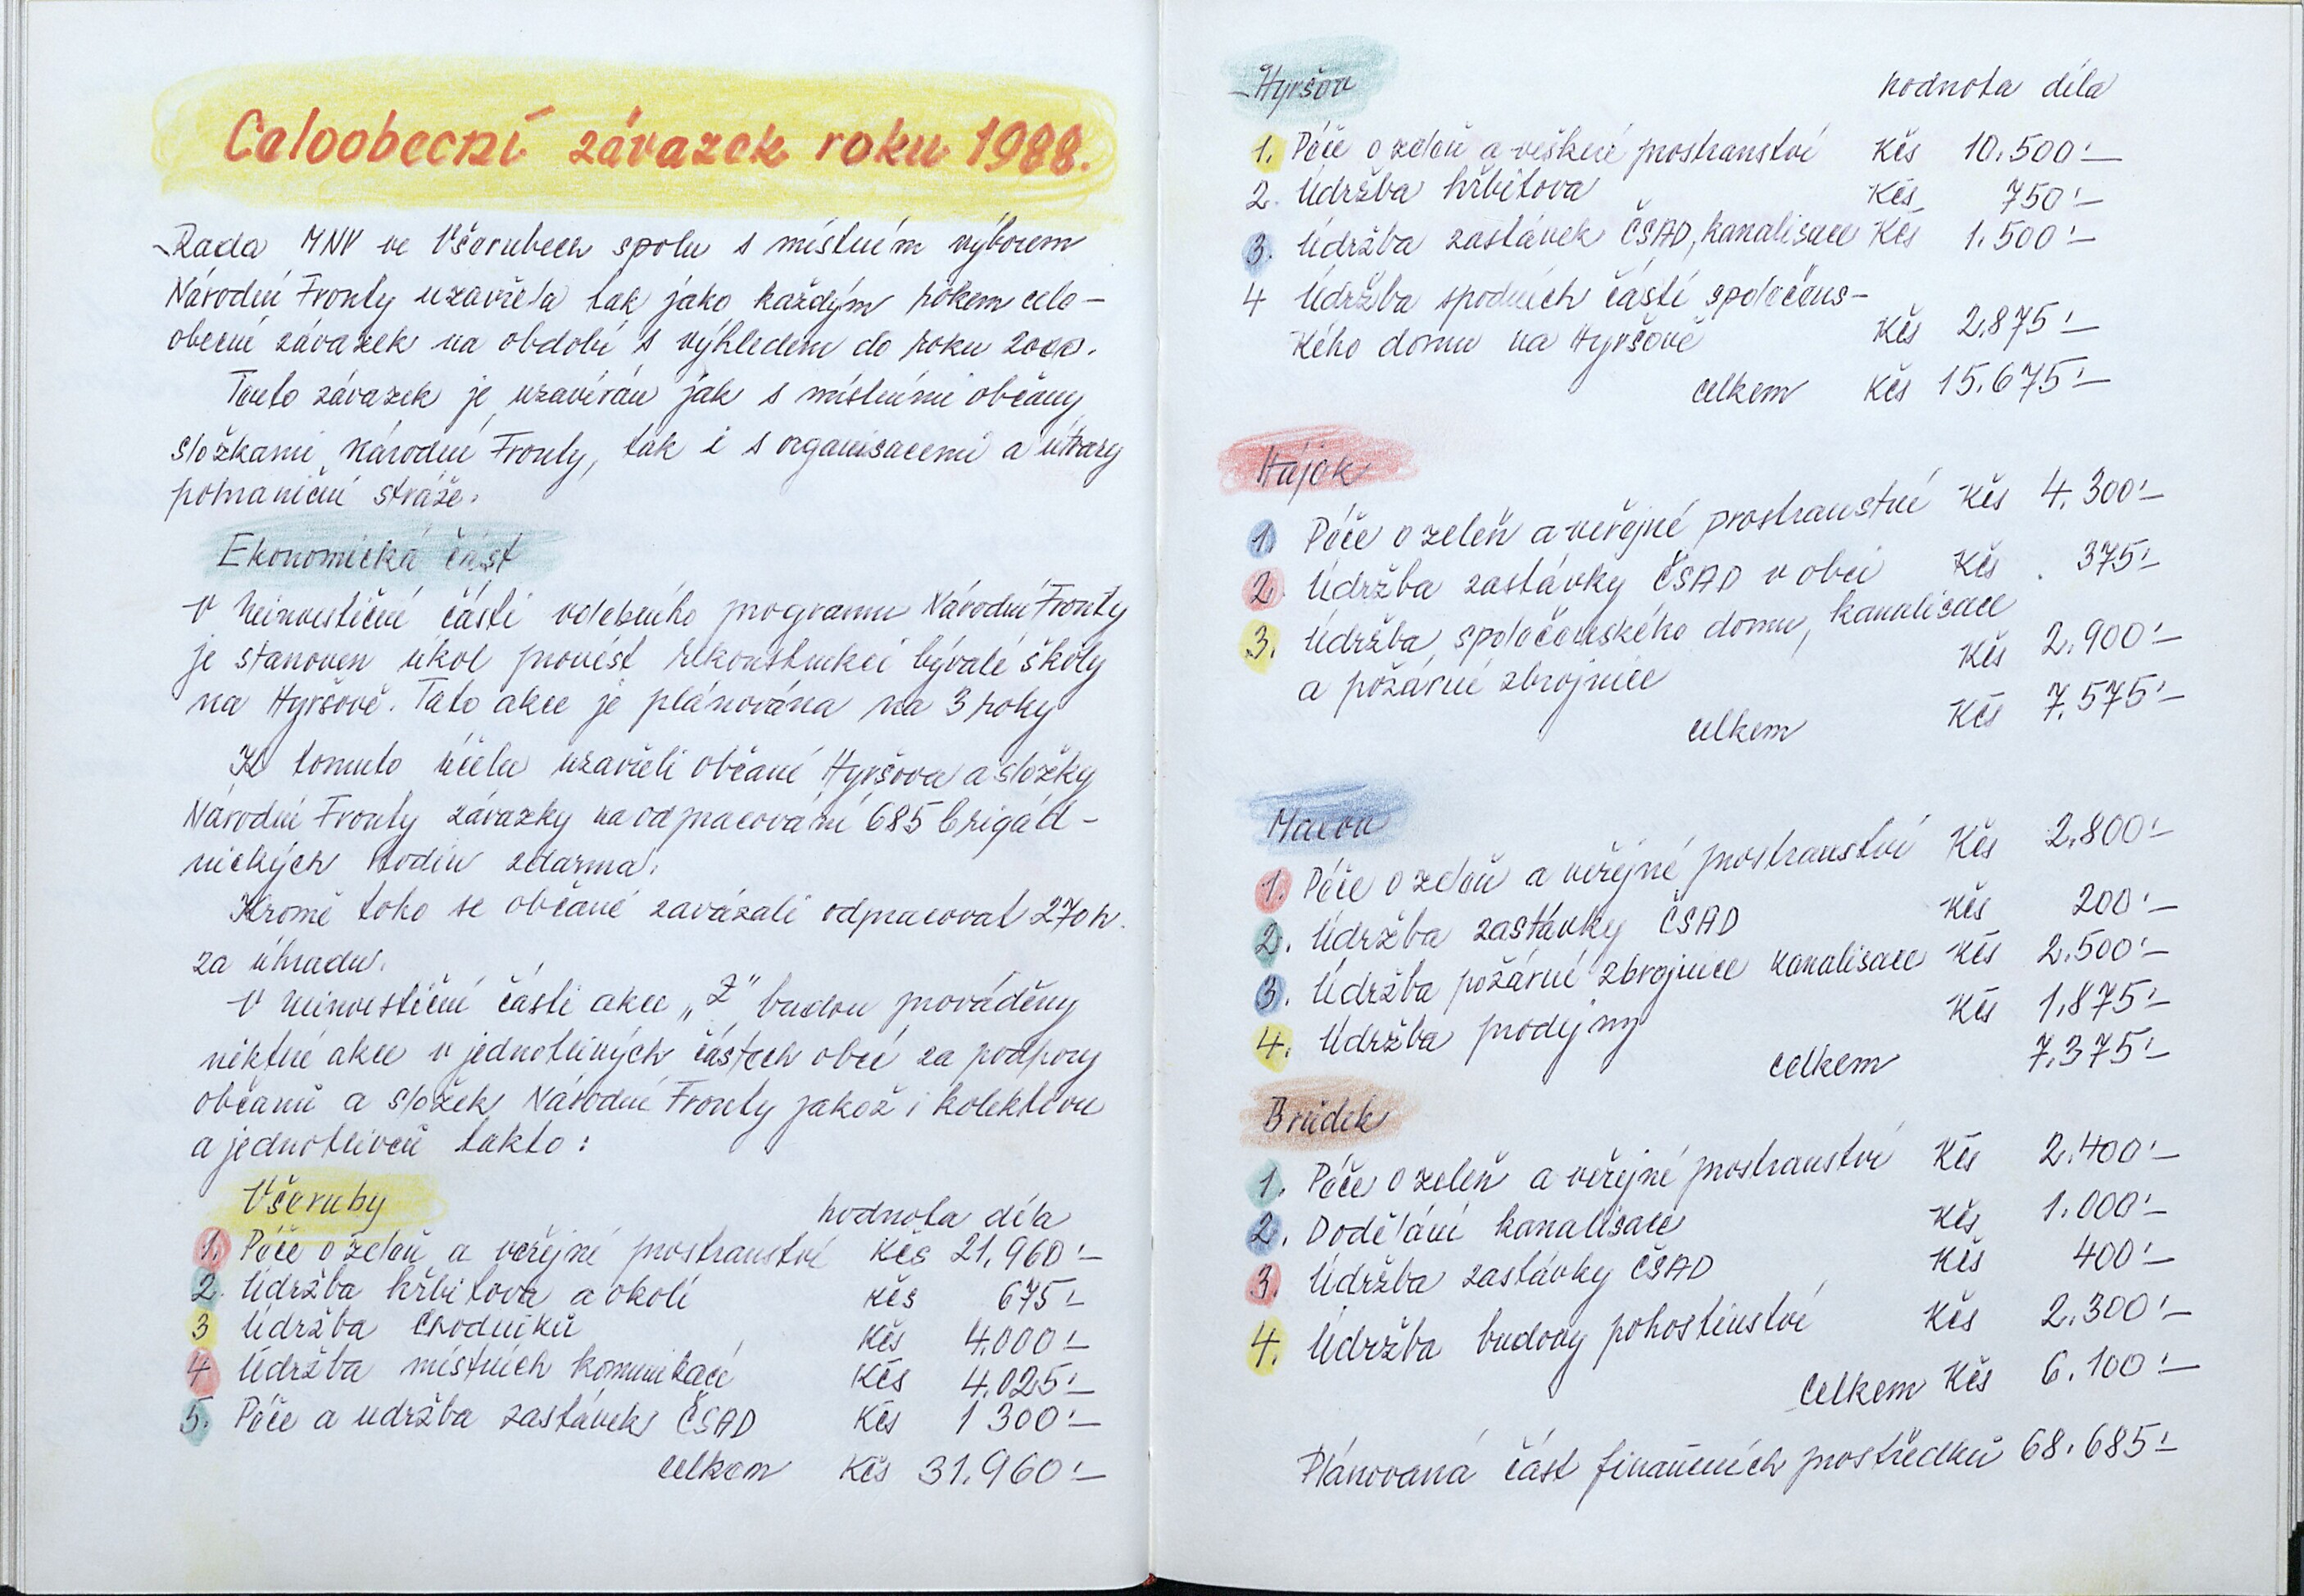 Celoobecní závazek roku 1988.
Rada MNV ve Všerubech spolu s místním výborem
Národní Fronty uzavřela tak jako každým rokem celo-
obecní závazek na období s výhledem do roku 2000.
Tento závazek je uzavírán jak s místními občany
složkami Národní Fronty, tak i s organisacemi a útvary
pohraniční stráže.
Ekonomická část
V neinvestiční části volebního programu Národní Fronty
je stanoven úkol provést rekonstrukci bývalé školy
na Hyršově. Tato akce je plánována na 3 roky
K tomuto účelu uzavřeli občané Hyršova a složky
Národní Fronty závazky na odpracování 685 brigád-
nických hodin zdarma.
Kromě toho se občané zavázali odpracovat 270 h.
za úhradu.
V neinvestiční části akce „Z" budou prováděny
některé akce v jednotlivých částech obcí za podpory
občanů a složek Národní Fronty jakož i kolektivu
a jednotlivců takto:
Všeruby
hodnota díla
1. Péče o zeleň a veřejné prostranství Kčs 21.960'-
2. Údržba hřbitova a okolí Kčs 675'-
3 Údržba chodníků Kčs 4.000'-
4 Údržba místních komunikací Kčs 4.025'-
5. Péče a udržba zastávek ČSAD Kčs 1 300'-
celkem Kčs 31.960'-
Hyršov hodnota díla
1. Péče o zeleň a veškeré prostranství Kčs 10.500'-
2. Údržba hřbitova Kčs 750'-
3. Údržba zastávek ČSAD, kanalisace Kčs 1.500'-
4 Údržba spodních částí společens-
kého domu na Hyršově Kčs 2.875'-
celkem Kčs 15.675'-
Hájek
1. Péče o zeleň a veřejné prostranství Kčs 4.300'-
2. Údržba zastávky ČSAD v obci Kčs 375'-
3. Údržba společenského domu, kanalisace
a požární zbrojnice Kčs 2.900'-
celkem Kčs 7.575'-
Maxov
1. Péče o zeleň a veřejné prostranství Kčs 2.800'-
2. Údržba zastávky ČSAD Kčs 200'-
3. Údržba požární zbrojnice kanalisace Kčs 2.500'-
4. Údržba prodejny Kčs 1.875'-
celkem 7.375'-
Brůdek
1. Péče o zeleň a veřejné prostranství Kčs 2.400'-
2. Dodělání kanalisace Kčs 1.000'-
3. Údržba zastávky ČSAD Kčs 400'-
4. Údržba budovy pohostinství Kčs 2.300'-
Celkem Kčs 6.100'-
Plánovaná část finančních prostředků 68.685'-